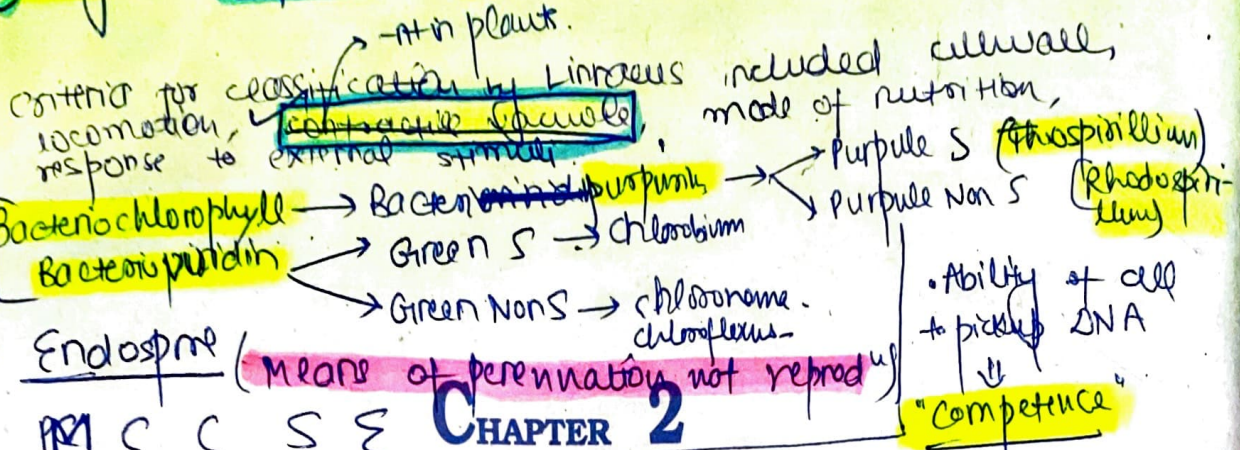 -Atin plants.
criteria for classification by Linnaeus included cellwall,
locomotion, contractile Vacuole, mode of nutrition,
response to external stimuli.
Bacteriochlorophyll → Bacterio purpurin → Purpule S (Thiospirillium)
Purpule Non S (Rhodospirillum)
Bacterioviridin → Green S → Chlorobium
Green Non S → chloronema.
chloroflexus
• Ability of cell
to pickup DNA
⇓
"Competence"
Endospore (Means of perennation not reprodu)
C C S E
CHAPTER 2